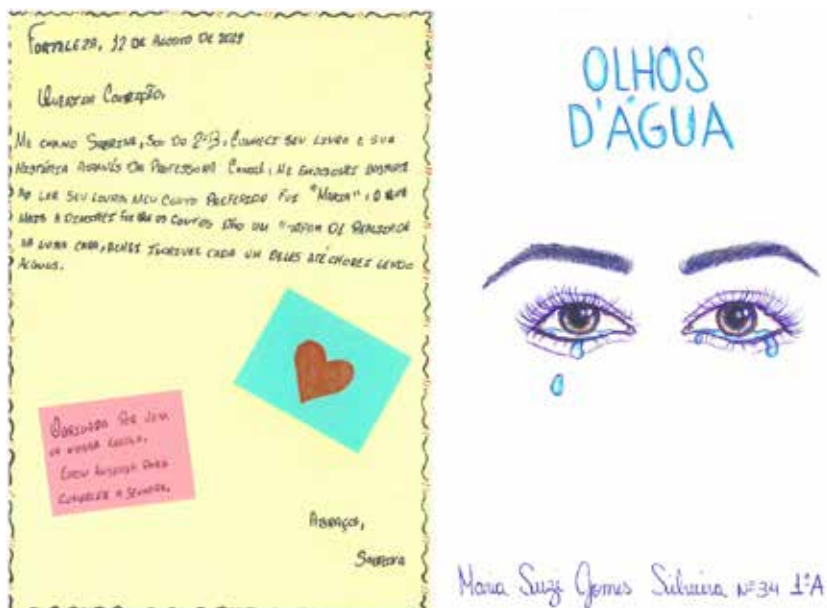 Fortaleza, 12 de Agosto de 2019
Querida Conceição,
Me chamo Sabrina, sou do 2ºB, conheci seu livro e sua
história através da Professora Camila, me emocionei
ao ler seu livro. Meu conto preferido foi "Maria", o que
mais a os contos são um de realidade
na cara, achei incrível cada um deles até chorei lendo
alguns.
Obrigada por vim
na nossa escola.
Estou ansiosa para
conhecer a senhora.
Abraços,
Sabrina
OLHOS
D'ÁGUA
Maria Suzi Gomes Silveira Nº34 1ºA